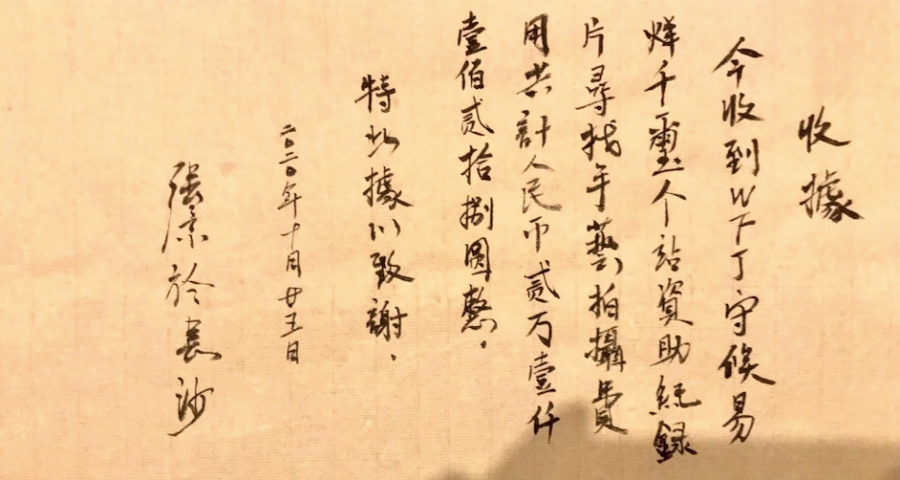 收據
今收到W下丁守候易
烊千璽个站資助紀録
片尋找手藝拍攝費
用共計人民币贰万壹仟
壹佰贰拾捌圆整。
特此據以致謝.
二〇二〇年十月廿五日
張景於長沙